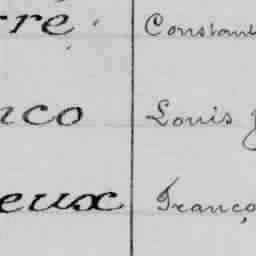 rré Constant
nco Louis J
eux Franço